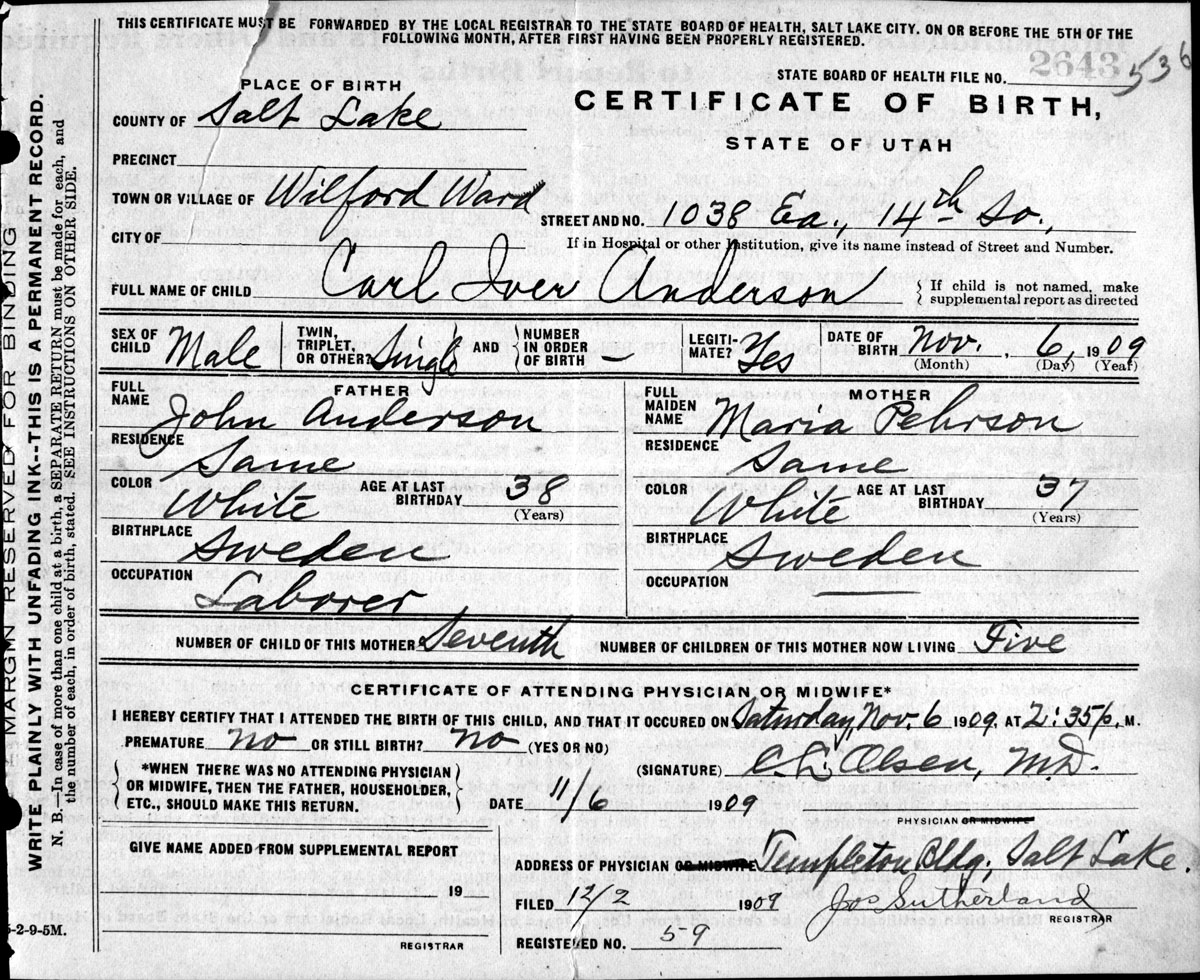 THIS CERTIFICATE MUST BE FORWARDED BY THE LOCAL REGISTRAR TO THE STATE BOARD OF HEALTH, SALT LAKE CITY. ON OR BEFORE THE 5TH OF THE
FOLLOWING MONTH, AFTER FIRST HAVING BEEN PROPERLY REGISTERED.
STATE BOARD OF HEALTH FILE NO. 2643 536
PLACE OF BIRTH
CERTIFICATE OF BIRTH,
STATE OF UTAH
COUNTY OF Salt Lake
PRECINCT
TOWN OR VILLAGE OF Wilford Ward
STREET AND NO. 1038 Ea., 14th So.
CITY OF
If in Hospital or other Institution, give its name instead of Street and Number.
FULL NAME OF CHILD Carl Iver Anderson
If child is not named, make
supplemental report as directed
SEX OF CHILD Male
TWIN, TRIPLET, OR OTHER? Single
AND NUMBER IN ORDER OF BIRTH —
LEGITIMATE? Yes
DATE OF BIRTH Nov. 6, 1909
(Month) (Day) (Year)
FATHER
FULL NAME John Anderson
RESIDENCE Same
COLOR White AGE AT LAST BIRTHDAY 38
(Years)
BIRTHPLACE Sweden
OCCUPATION Laborer
MOTHER
FULL MAIDEN NAME Maria Pehrson
RESIDENCE Same
COLOR White AGE AT LAST BIRTHDAY 37
(Years)
BIRTHPLACE Sweden
OCCUPATION —
NUMBER OF CHILD OF THIS MOTHER Seventh NUMBER OF CHILDREN OF THIS MOTHER NOW LIVING Five
CERTIFICATE OF ATTENDING PHYSICIAN OR MIDWIFE*
I HEREBY CERTIFY THAT I ATTENDED THE BIRTH OF THIS CHILD, AND THAT IT OCCURED ON Saturday, Nov. 6 1909, AT 2:35 p. M.
PREMATURE no OR STILL BIRTH? no (YES OR NO)
*WHEN THERE WAS NO ATTENDING PHYSICIAN
OR MIDWIFE, THEN THE FATHER, HOUSEHOLDER,
ETC., SHOULD MAKE THIS RETURN.
(SIGNATURE) C. L. Olsen, M.D.
DATE 11/6 1909
PHYSICIAN OR MIDWIFE
GIVE NAME ADDED FROM SUPPLEMENTAL REPORT
19
REGISTRAR
ADDRESS OF PHYSICIAN OR MIDWIFE Templeton Bldg, Salt Lake.
FILED 12/2 1909 Jos Sutherland
REGISTRAR
REGISTERED NO. 59
5-2-9-5M.
MARGIN RESERVED FOR BINDING
WRITE PLAINLY WITH UNFADING INK--THIS IS A PERMANENT RECORD.
N. B.—In case of more than one child at a birth, a SEPARATE RETURN must be made for each, and
the number of each, in order of birth, stated. SEE INSTRUCTIONS ON OTHER SIDE.